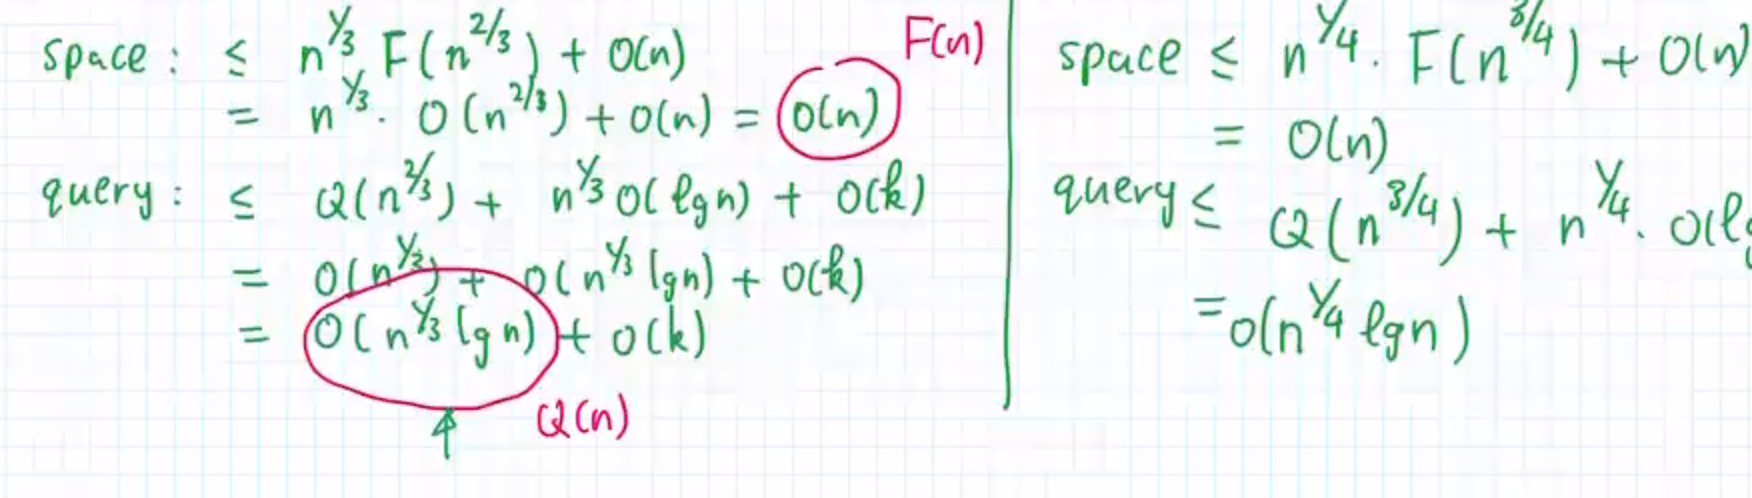 space : ≤ n^{1/3} F(n^{2/3}) + O(n)
= n^{1/3} · O(n^{2/3}) + O(n) = O(n)
F(n)
query : ≤ Q(n^{2/3}) + n^{1/3} O(lg n) + O(k)
= O(n^{1/3}) + O(n^{1/3} lg n) + O(k)
= O(n^{1/3} lg n) + O(k)
Q(n)
space ≤ n^{1/4} · F(n^{3/4}) + O(n)
= O(n)
query ≤ Q(n^{3/4}) + n^{1/4} · O(lg
= O(n^{1/4} lg n)